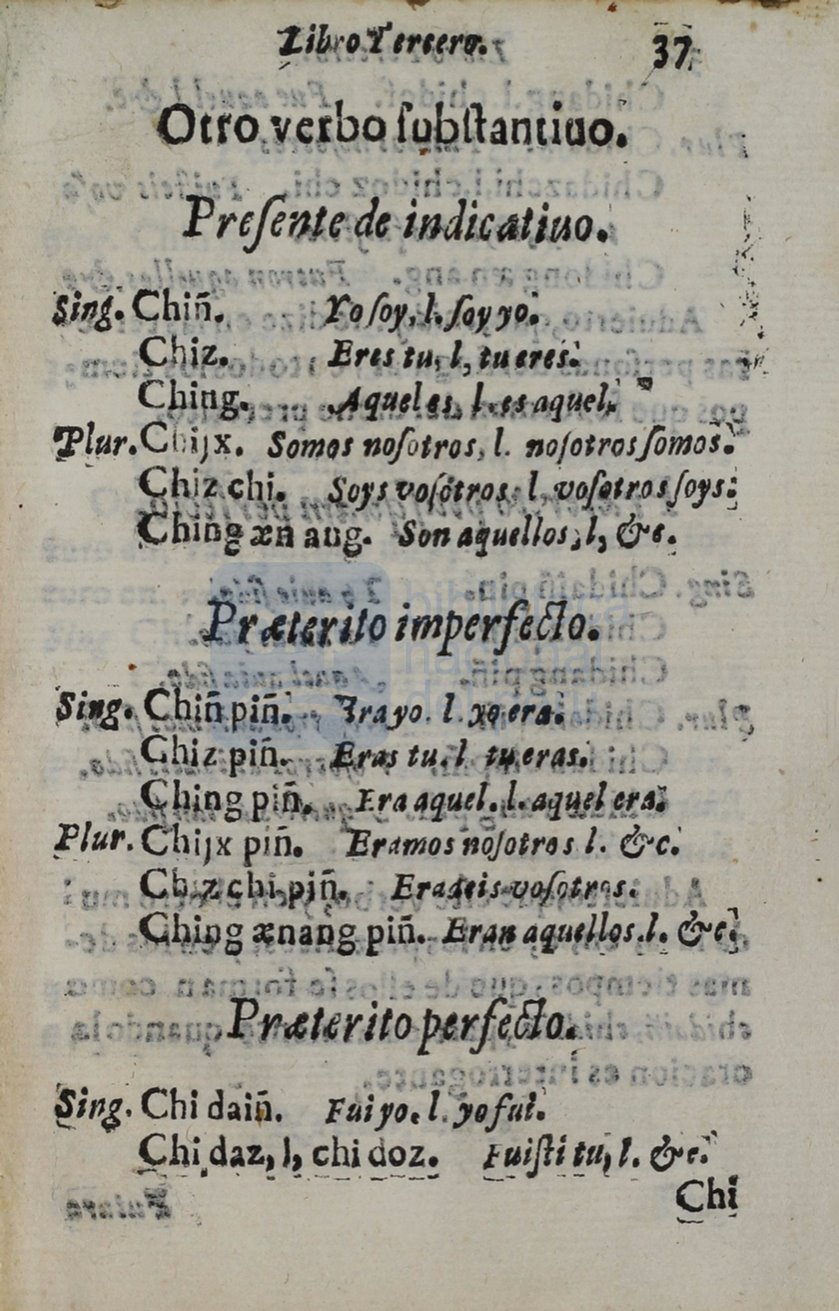 Libro Tercero. 37
Otro verbo ſubſtantiuo.
Preſente de indicatiuo.
Sing. Chiñ. Yo ſoy, l. ſoy yo.
Chiz. Eres tu, l, tu eres.
Ching. Aquel es, l. es aquel.
Plur. Chijx. Somos noſotros, l. noſotros ſomos.
Chiz chi. Soys voſotros, l. voſotros ſoys.
Ching æn ang. Son aquellos, l, &c.
Præterito imperfecto.
Sing. Chiñ piñ. Era yo. l. yo era.
Chiz piñ. Eras tu. l tu eras.
Ching piñ. Era aquel. l. aquel era.
Plur. Chijx piñ. Eramos noſotros l. &c.
Chiz chi piñ. Eradeis voſotros.
Ching ænang piñ. Eran aquellos. l. &c.
Præterito perfecto.
Sing. Chi daiñ. Fui yo. l. yo fui.
Chi daz, l, chi doz. Fuiſti tu, l. &c.
Chi